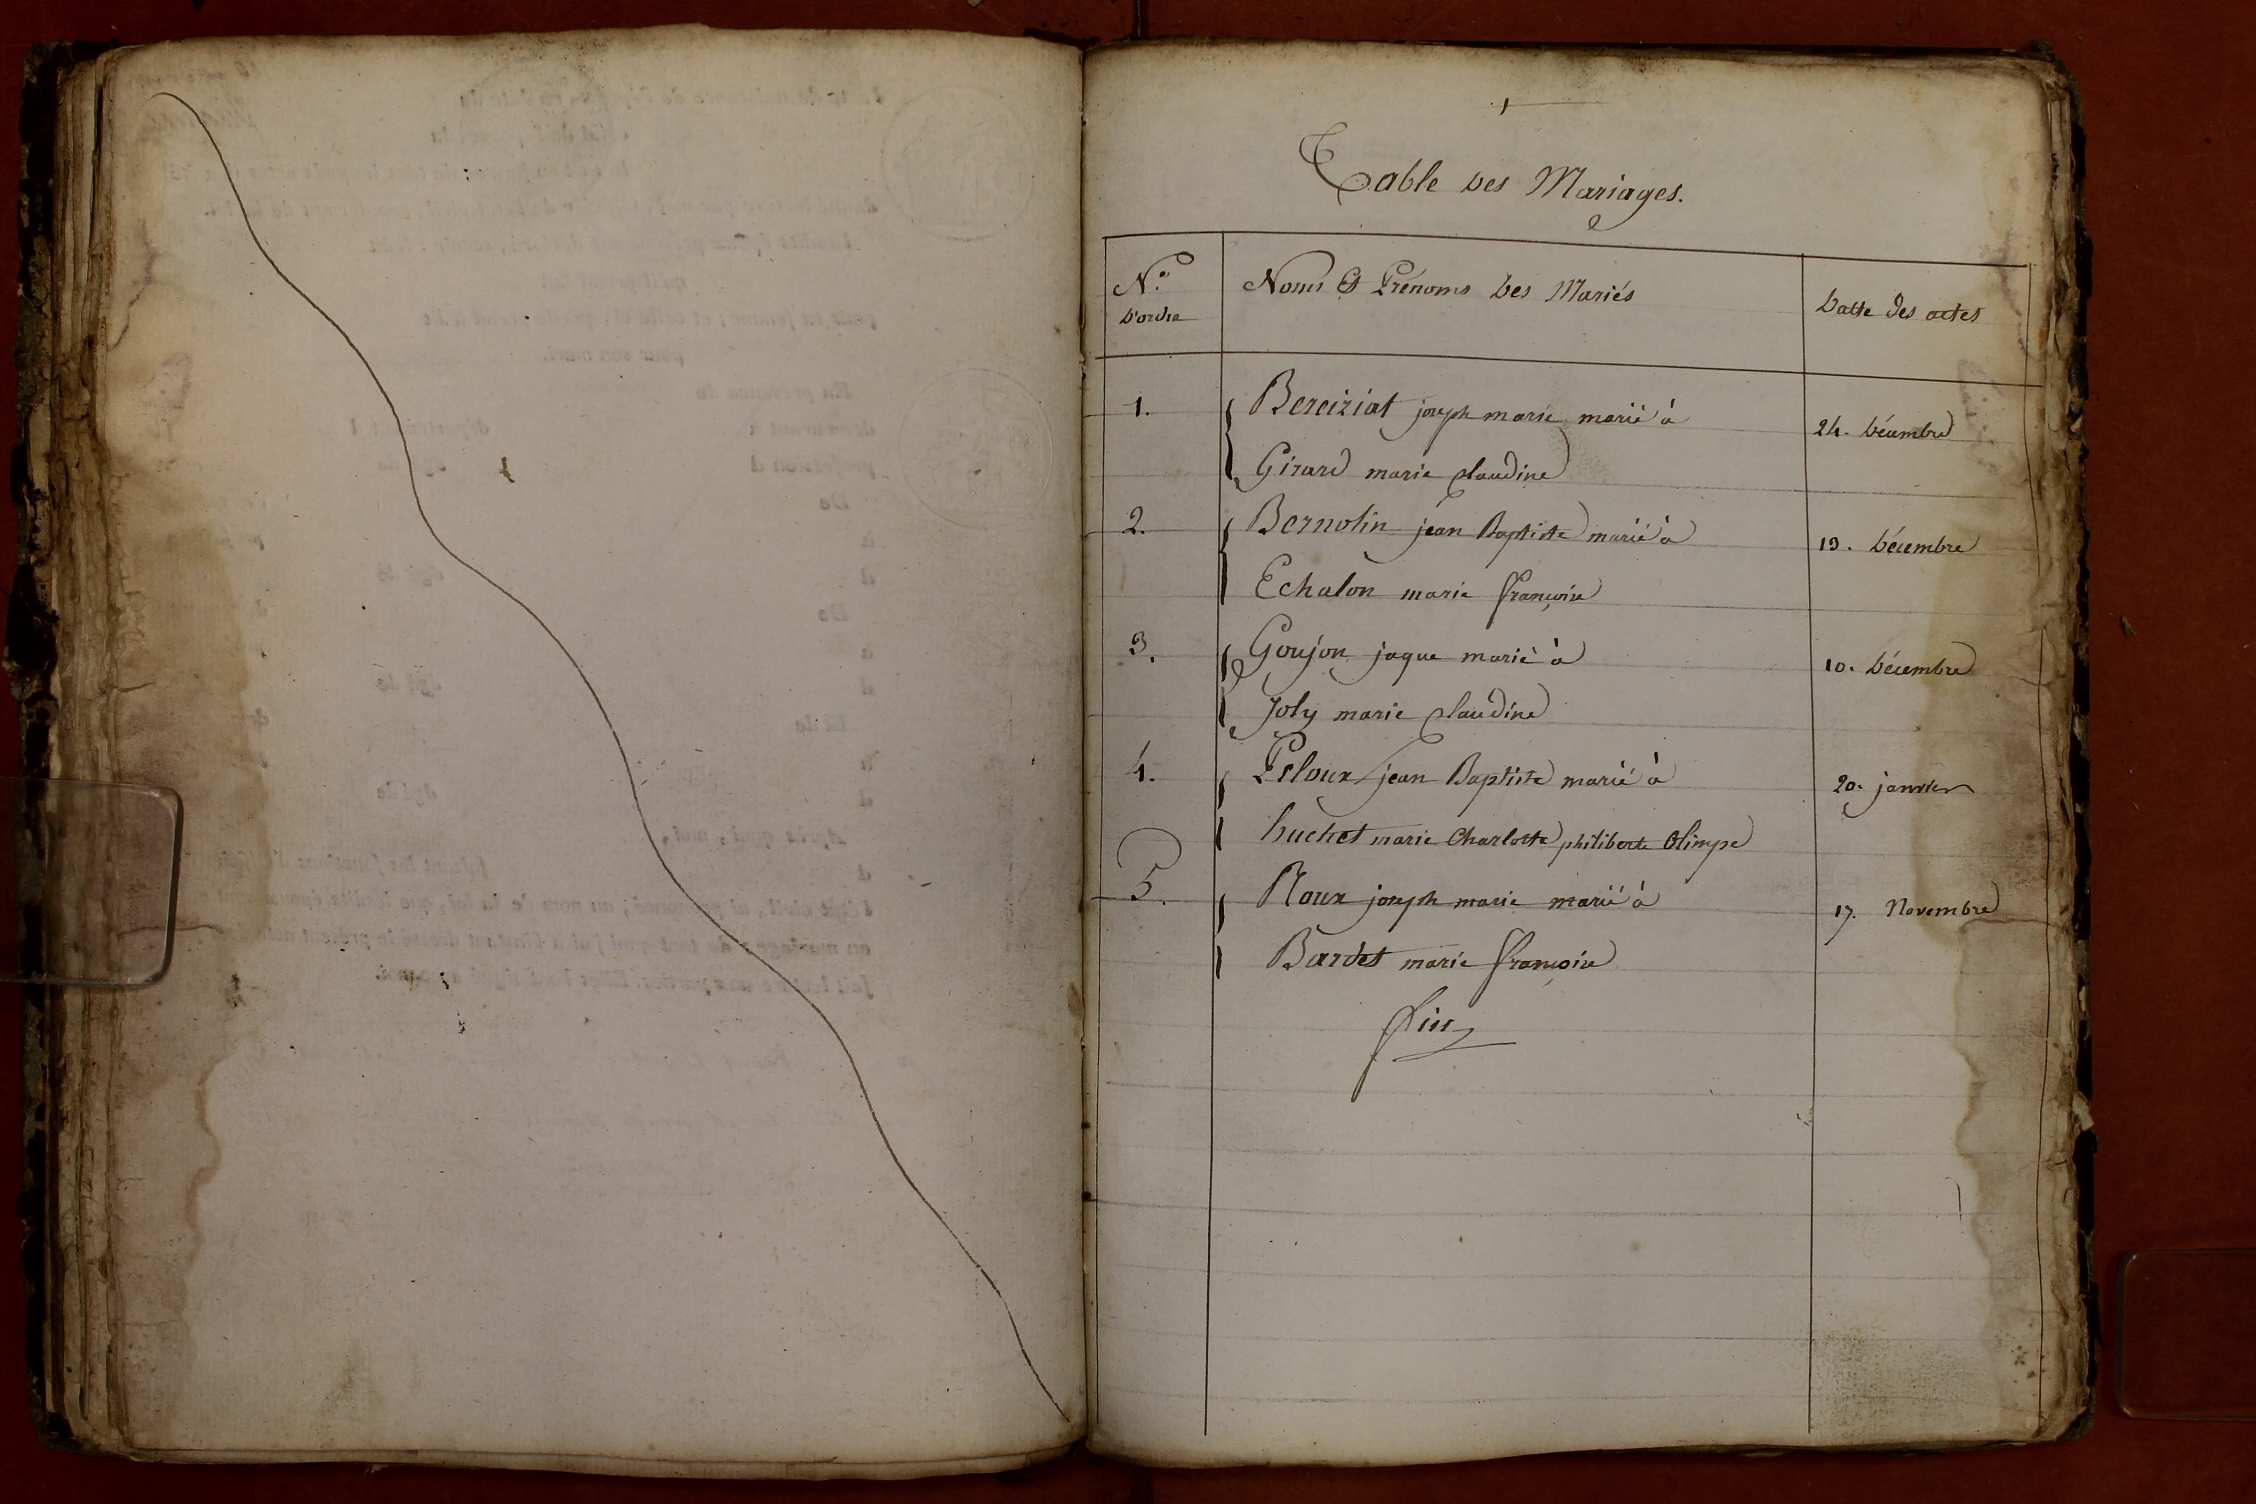 Table des Mariages.
N.o d'ordre
Noms Et Prénoms des Mariés
datte des actes
1. Bereiziat joseph marie marié à
24. décembre
Girard marie Claudine
2. Bernolin jean Baptiste marié à
19. décembre
Echalon marie françoise
3. Goujon jaque marié à
10. décembre
Joly marie Claudine
4. jean Baptiste marié à
20. janvier
huchet marie Charlotte philiberte Olimpe
5. Roux joseph marie marié à
17. Novembre
Bardet marie françoise
fin